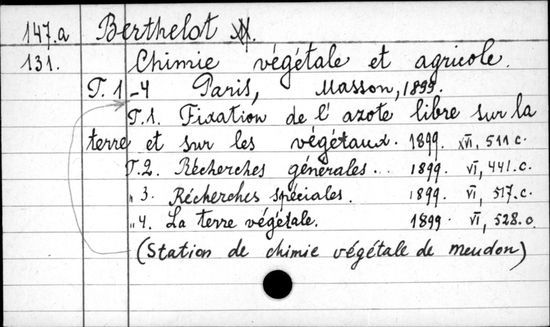 147.a Berthelot M.
131. Chimie végétale et agricole.
T. 1-4 Paris, Masson, 1899.
T.1. Fixation de l'azote libre sur la
terre et sur les végétaux. 1899. XVI, 511 c.
T.2. Récherches générales... 1899. VI, 441. c.
„ 3. Récherches spéciales. 1899. VI, 517. c.
„ 4. La terre végétale. 1899. VI, 528. c.
(Station de chimie végétale de meudon)